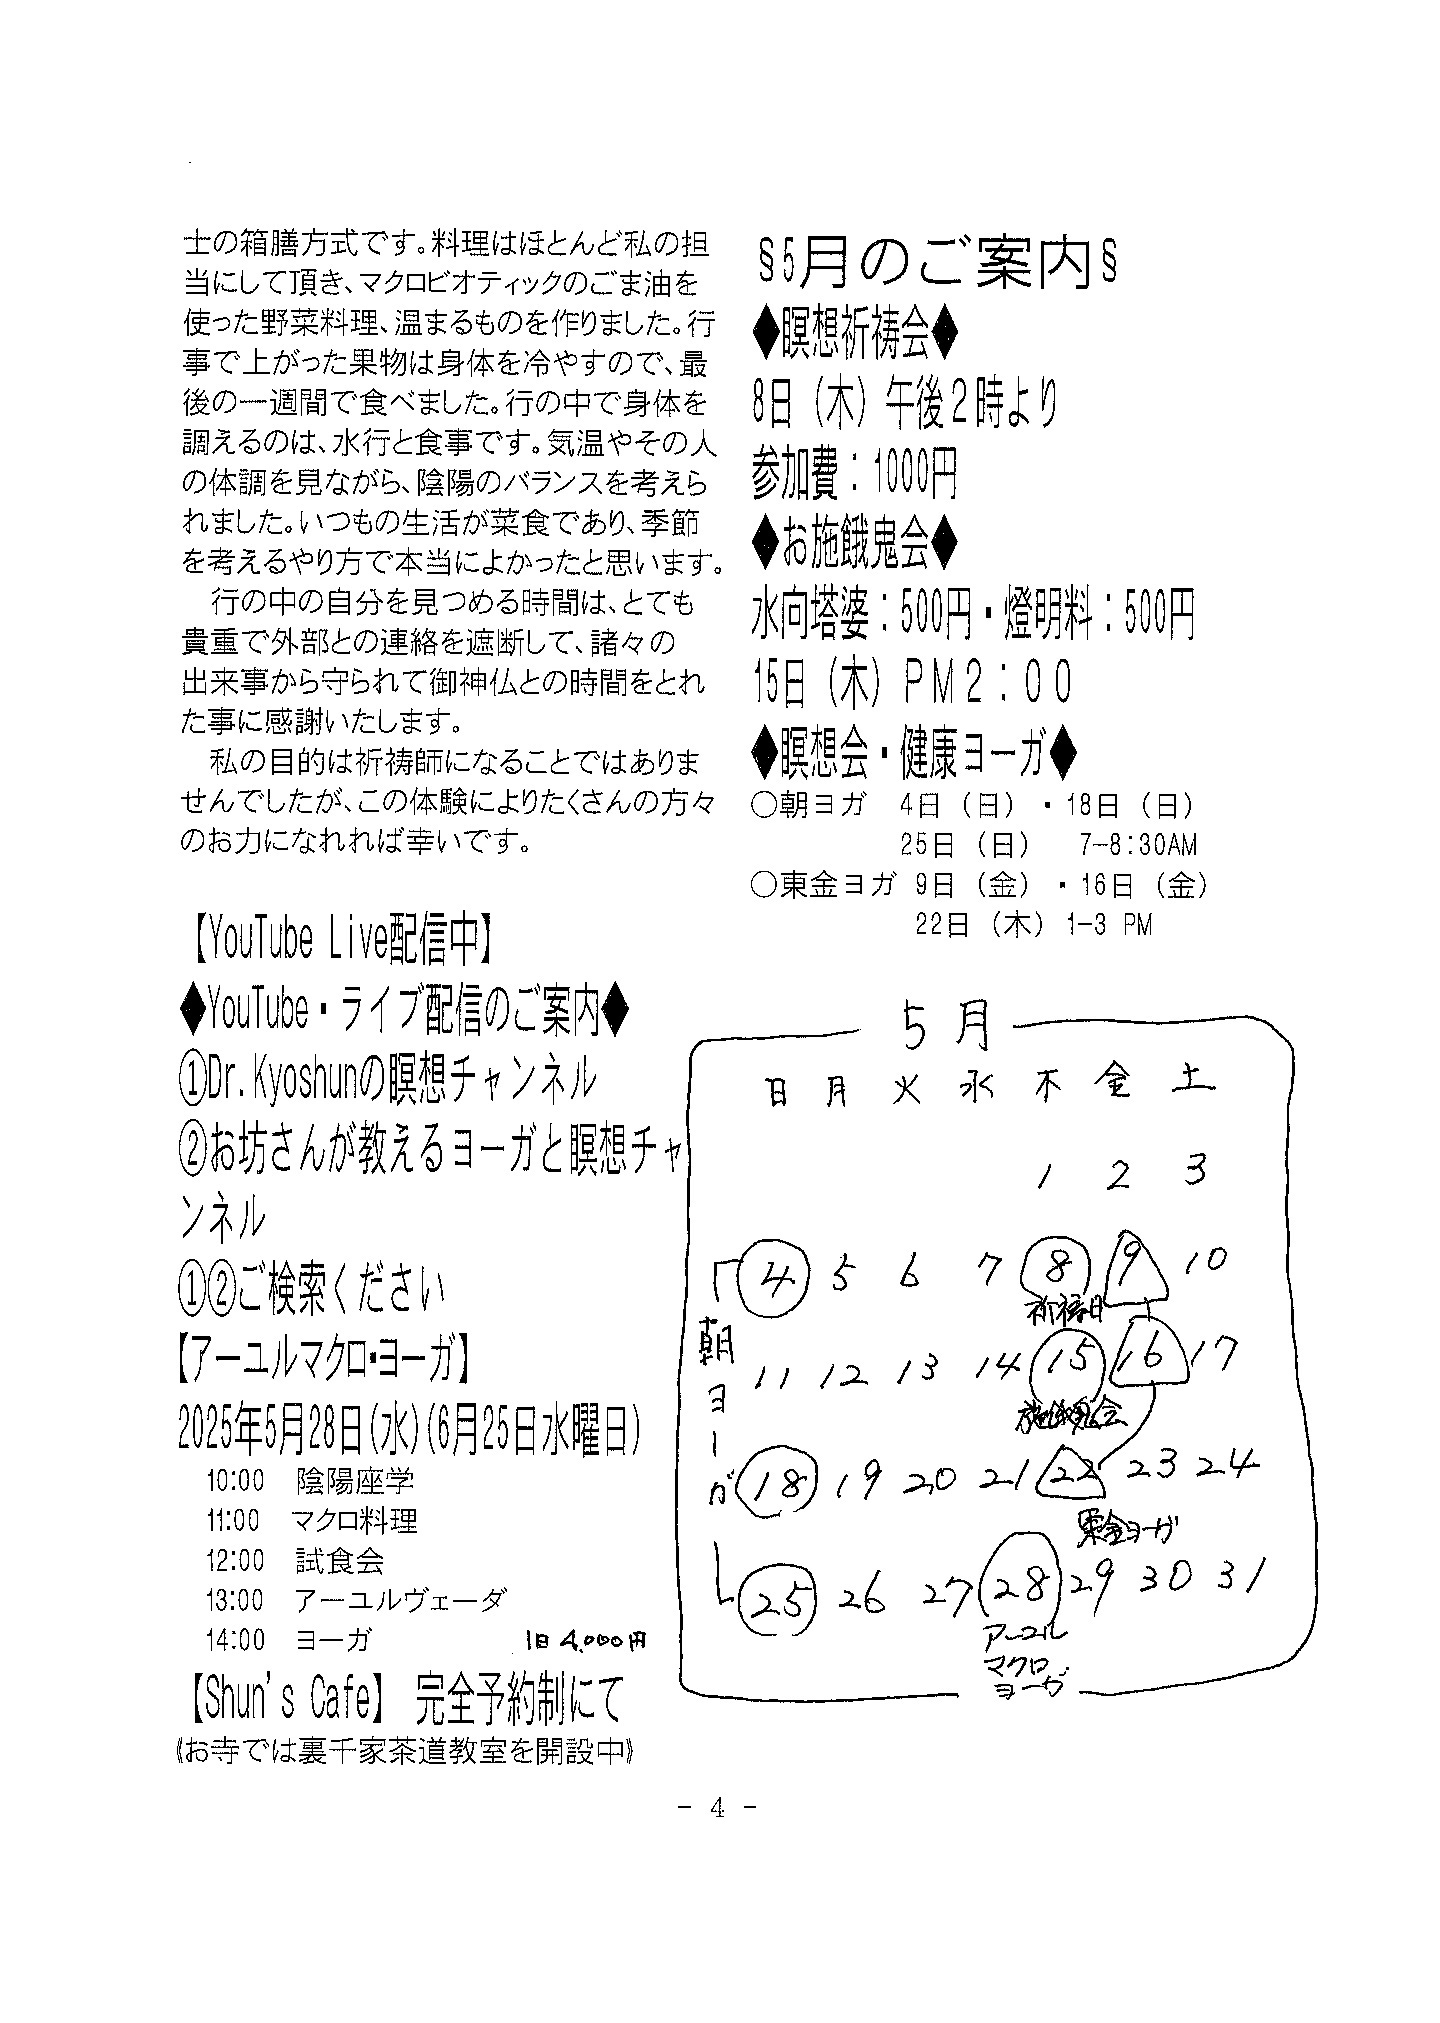 士の箱膳方式です。料理はほとんど私の担
当にして頂き、マクロビオティックのごま油を
使った野菜料理、温まるものを作りました。行
事で上がった果物は身体を冷やすので、最
後の一週間で食べました。行の中で身体を
調えるのは、水行と食事です。気温やその人
の体調を見ながら、陰陽のバランスを考えら
れました。いつもの生活が菜食であり、季節
を考えるやり方で本当によかったと思います。
行の中の自分を見つめる時間は、とても
貴重で外部との連絡を遮断して、諸々の
出来事から守られて御神仏との時間をとれ
た事に感謝いたします。
私の目的は祈祷師になることではありま
せんでしたが、この体験によりたくさんの方々
のお力になれれば幸いです。
【YouTube Live配信中】
◆YouTube・ライブ配信のご案内◆
①Dr.Kyoshunの瞑想チャンネル
②お坊さんが教えるヨーガと瞑想チャ
ンネル
①②ご検索ください
【アーユルマクロ・ヨーガ】
2025年5月28日(水)(6月25日水曜日)
10:00 陰陽座学
11:00 マクロ料理
12:00 試食会
13:00 アーユルヴェーダ
14:00 ヨーガ 1日 4,000円
【Shun's Cafe】 完全予約制にて
《お寺では裏千家茶道教室を開設中》
§5月のご案内§
◆瞑想祈祷会◆
8日（木）午後２時より
参加費：1000円
◆お施餓鬼会◆
水向塔婆：500円・燈明料：500円
15日（木）ＰＭ２：００
◆瞑想会・健康ヨーガ◆
○朝ヨガ 4日（日）・18日（日）
25日（日） 7-8:30AM
○東金ヨガ 9日（金）・16日（金）
22日（木）1-3 PM
5月
日 月 火 水 木 金 土
1 2 3
4 5 6 7 8 9 10
祈祷日
11 12 13 14 15 16 17
施餓鬼会
18 19 20 21 22 23 24
東金ヨーガ
25 26 27 28 29 30 31
アーユル
マクロ
ヨーガ
朝ヨーガ
- 4 -